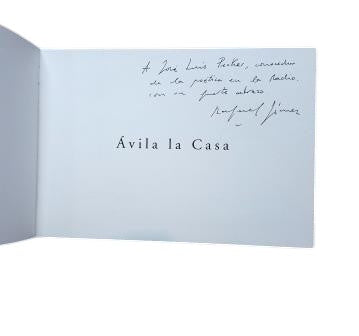 A José Luis Pecker, conocedor
de la poética en la Radio.
con un fuerte abrazo
Rafael Gómez
Ávila la Casa